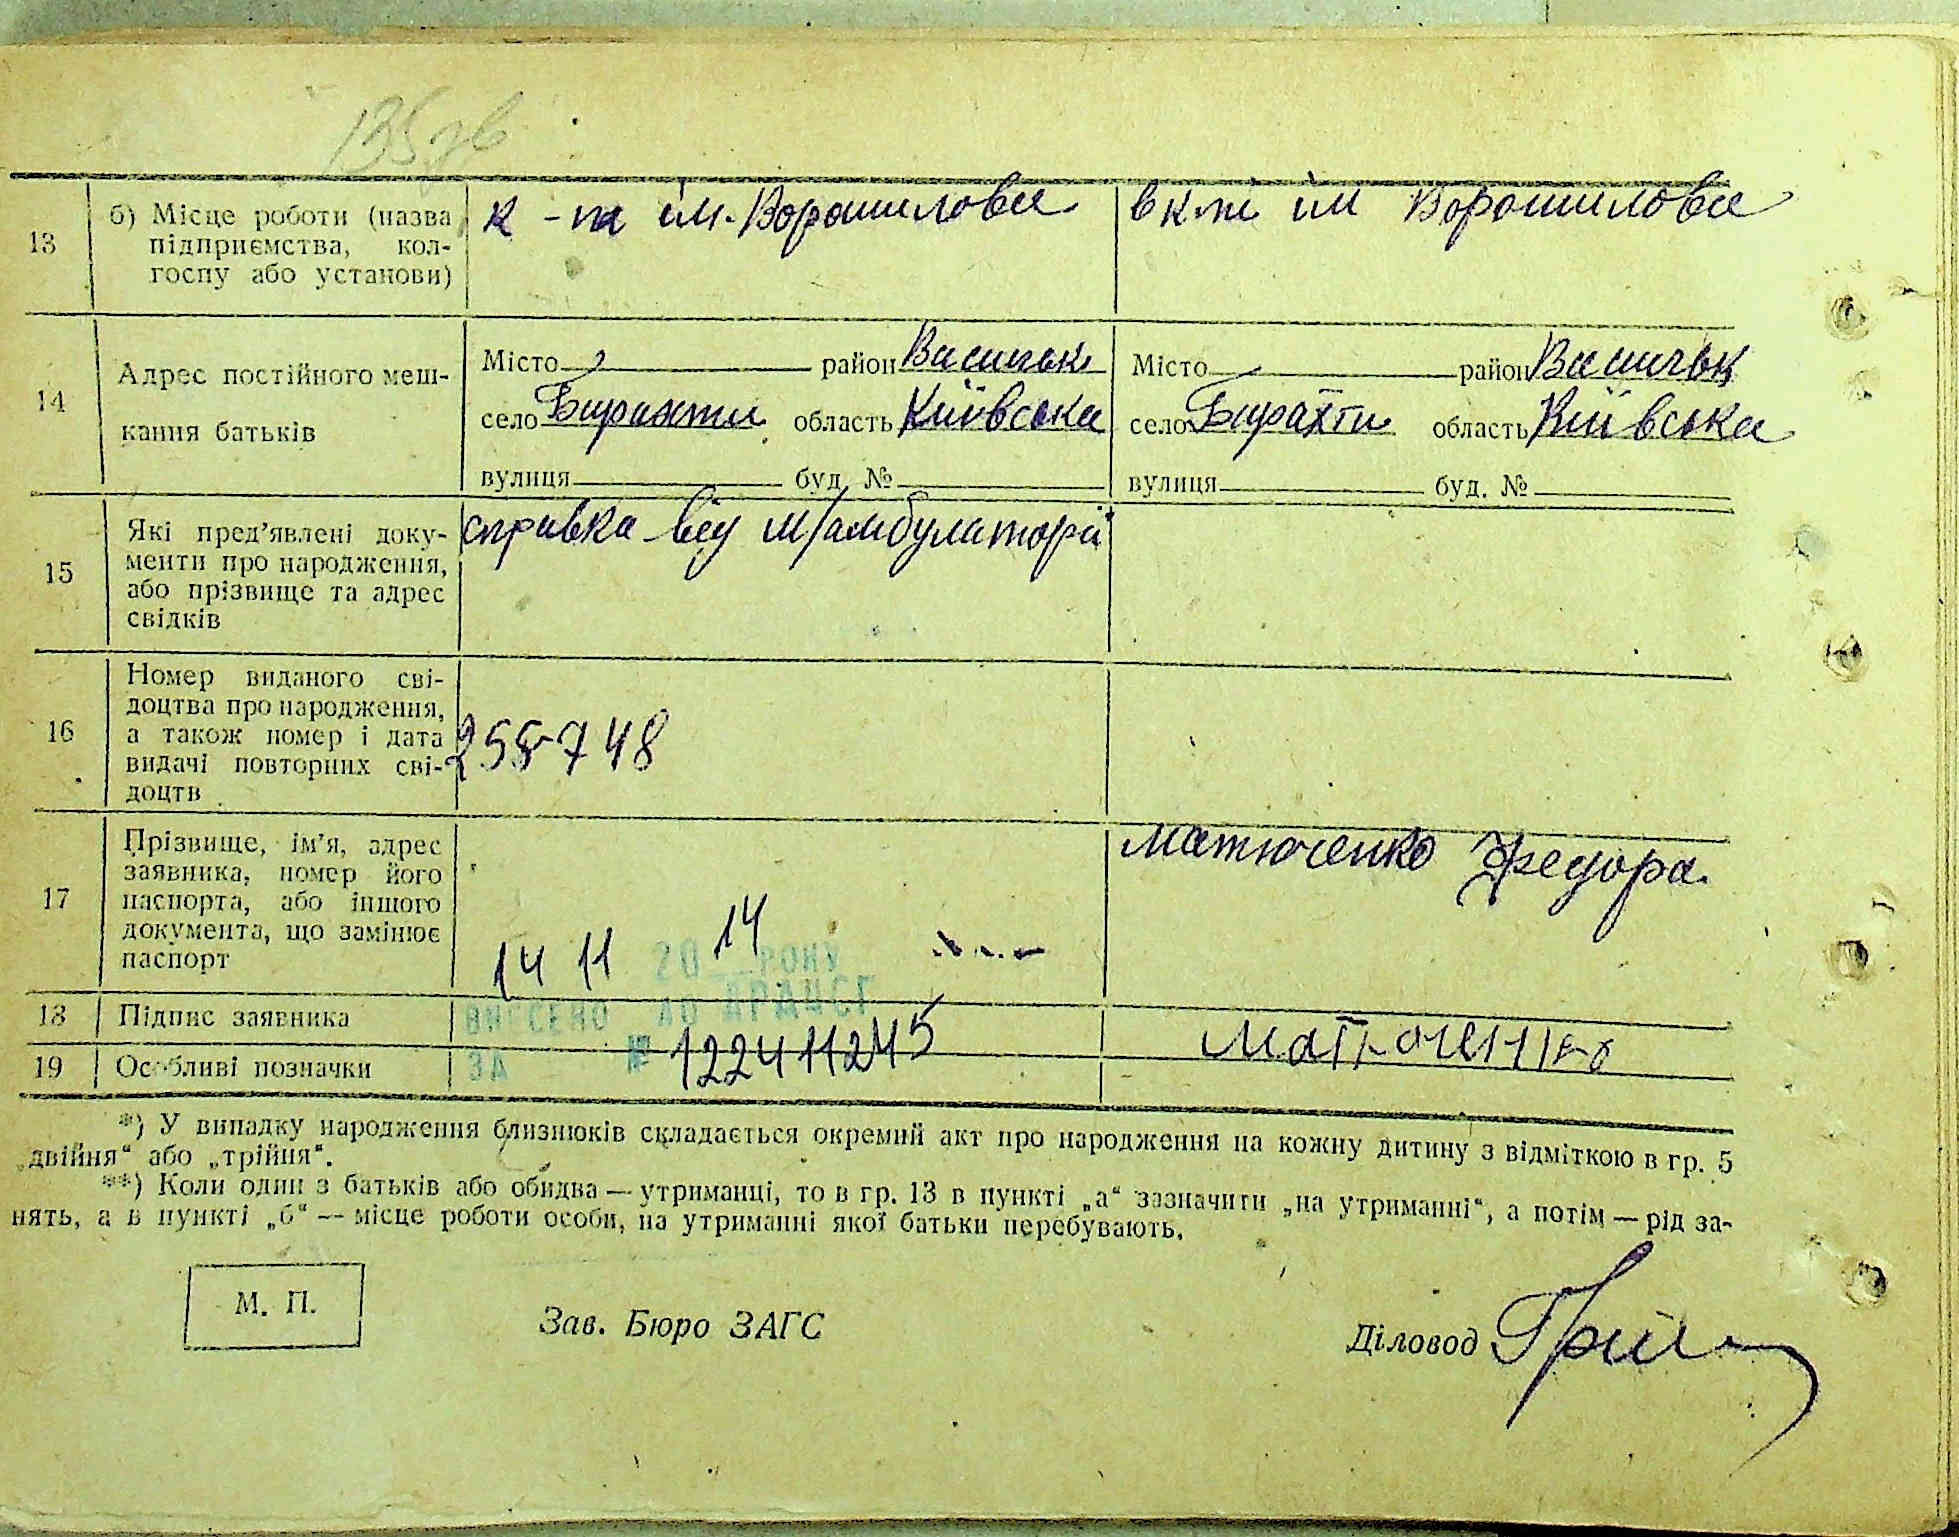 135 зв
13
б) Місце роботи (назва
підприємства, кол-
госпу або установи)
к-п ім. Ворошилова
в к-пі ім Ворошилова
14
Адрес постійного меш-
кання батьків
Місто район Васильк
село Бирахти область Київська
вулиця буд. №
Місто район Васильк
село Барахти область Київська
вулиця буд. №
15
Які пред'явлені доку-
менти про народження,
або прізвище та адрес
свідків
справка від м/амбулаторії
16
Номер виданого сві-
доцтва про народження,
а також номер і дата
видачі повторних сві-
доцтв
255748
17
Прізвище, ім'я, адрес
заявника, номер його
паспорта, або іншого
документа, що замінює
паспорт
Матюченко Федора.
14 11 20 14 РОКУ
18
Підпис заявника
ВНЕСЕНО ДО ДРАЦСГ
Матюченко
19
Особливі позначки
ЗА № 122411245
*) У випадку народження близнюків складається окремий акт про народження на кожну дитину з відміткою в гр. 5
„двійня“ або „трійня“.
**) Коли один з батьків або обидва — утриманці, то в гр. 13 в пункті „а“ зазначити „на утриманні“, а потім — рід за-
нять, а в пункті „б“ — місце роботи особи, на утриманні якої батьки перебувають.
М. П.
Зав. Бюро ЗАГС
Діловод